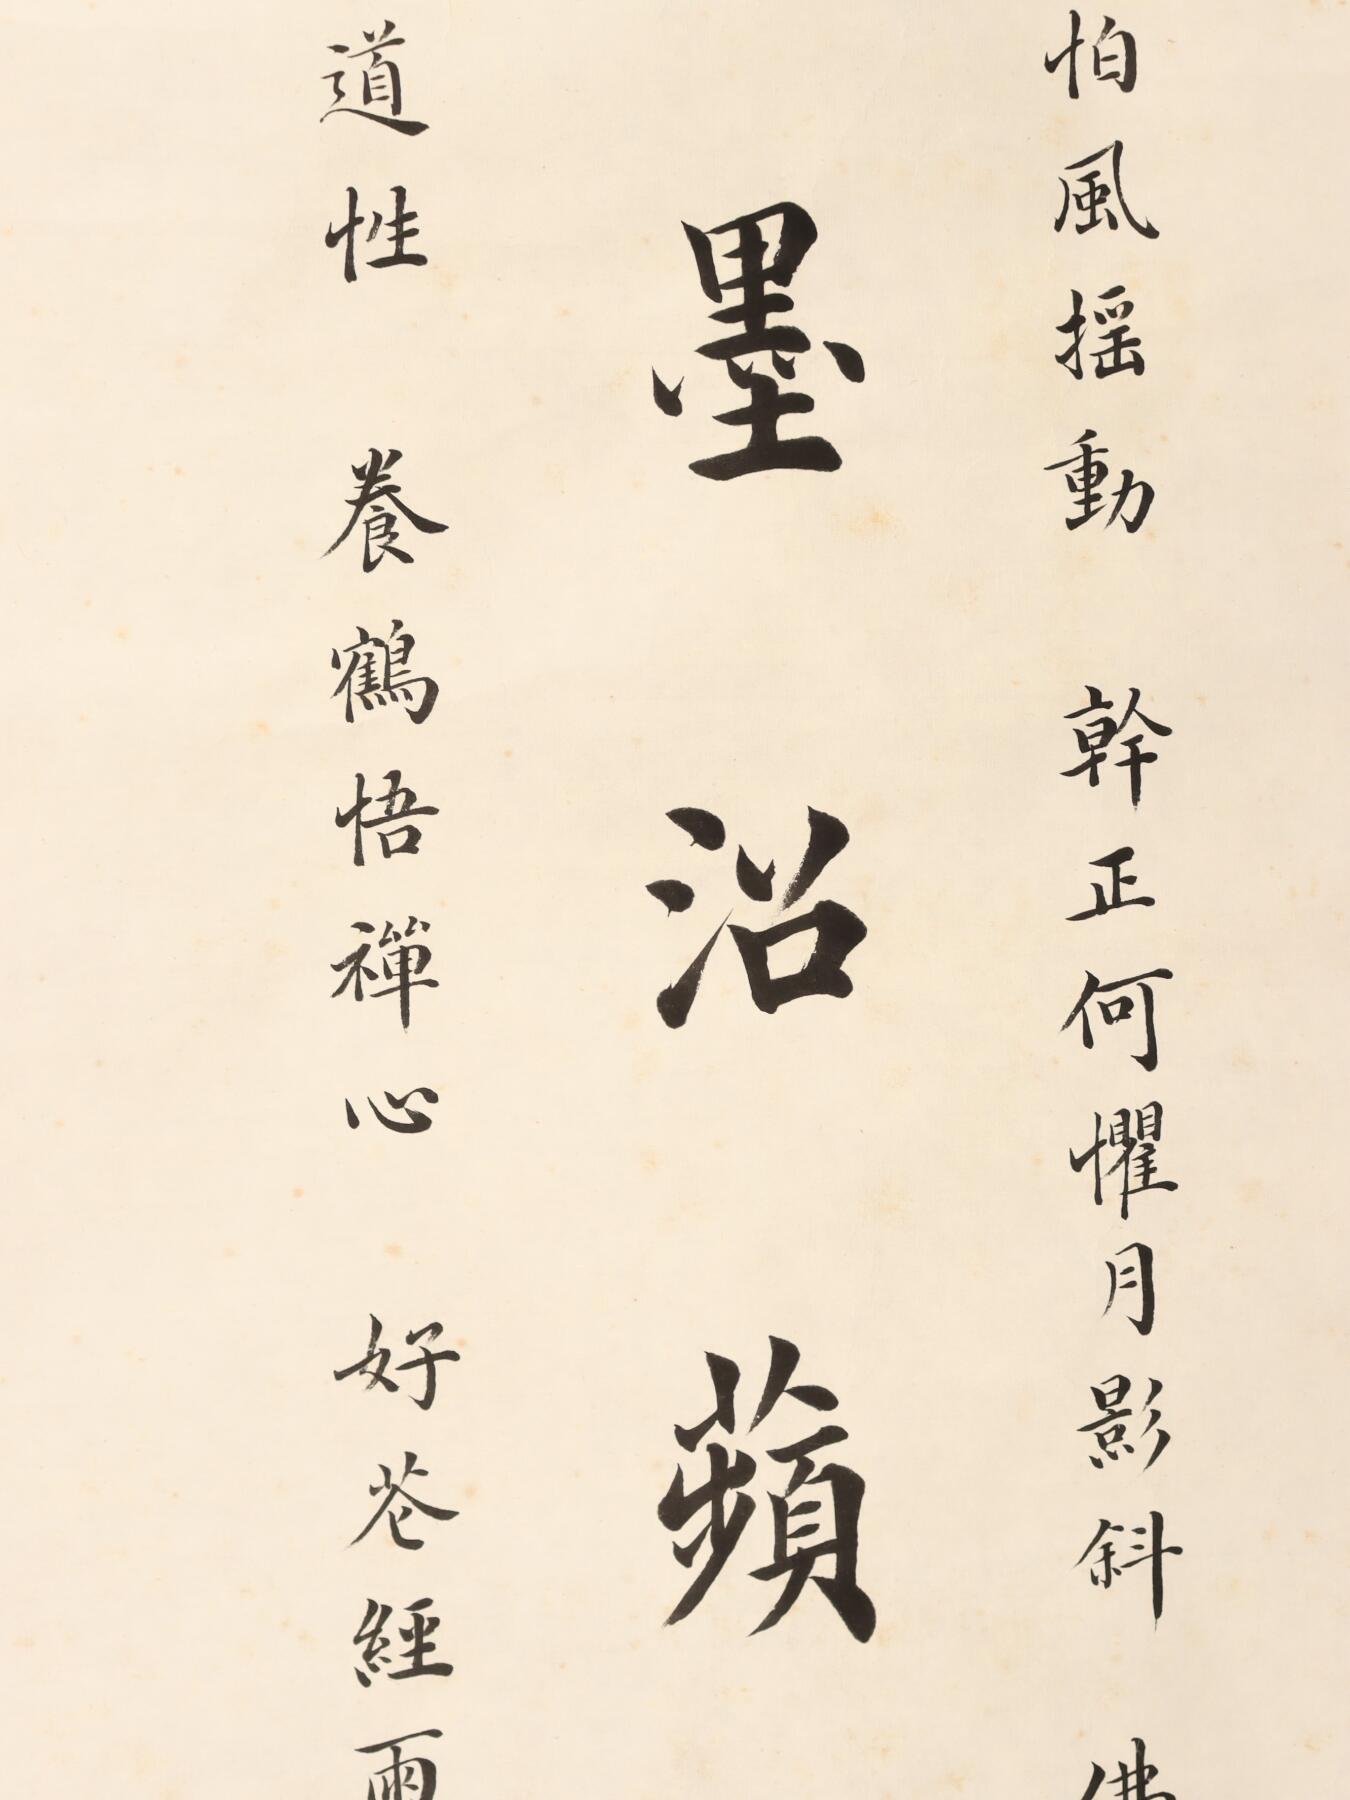 怕風揺動　幹正何懼月影斜　佛
墨沼蘋
道性　養鶴悟禪心　好花經雨